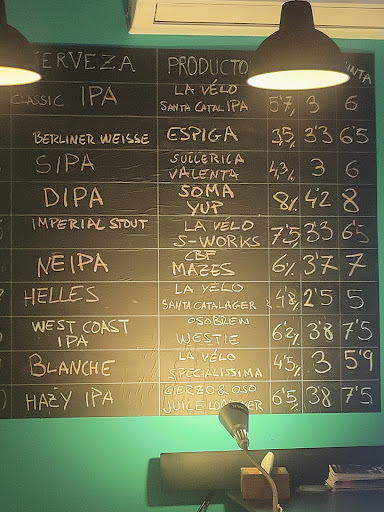 CERVEZA PRODUCTO INTA
CLASSIC IPA LA VÉLO SANTA CATALIPA 5'7% 3 6
BERLINER WEISSE ESPIGA 3'5% 3'3 6'5
SIPA SULLERICA VALENTA 4,3% 3 6
DIPA SOMA YUP 8% 4'2 8
IMPERIAL STOUT LA VÉLO S-WORKS 7'5% 3'3 6'5
NEIPA CBF MAZES 6% 3'7 7
HELLES LA VÉLO SANTA CATALAGER 4'8% 2'5 5
WEST COAST IPA OSOBREW WESTIE 6'2% 3'8 7'5
BLANCHE LA VÉLO SPECIALISSIMA 4'5% 3 5'9
HAZY IPA CIERZO & OSO JUICE 6'5% 3'8 7'5